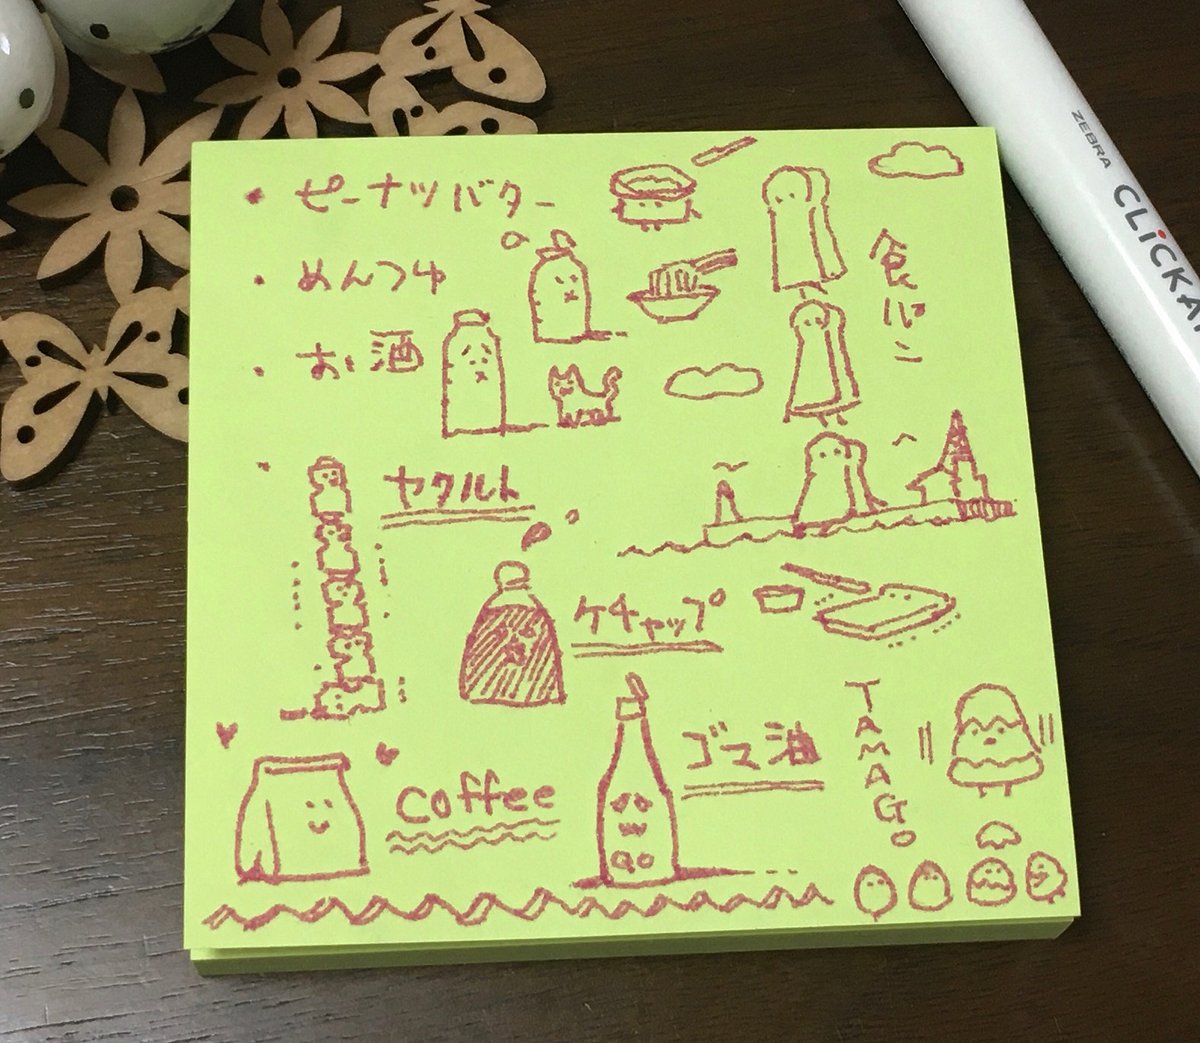 ・ピーナツバター
・めんつゆ
・お酒
食パン
・ヤクルト
ケチャップ
ゴマ油
coffee
TAMAGO
ZEBRA CLiCKA